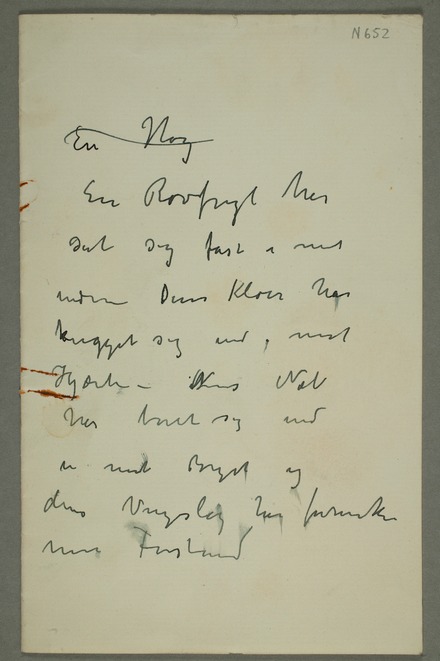 N652
En Høg
En Rovfugl har
sat sig fast i mit
indre Dens Kløer har
hugget sig ind i mit
Hjærte – Dens Næb
har boret sig ind
i mit Bryst og
dens Vingeslag har formørket
min Forstand